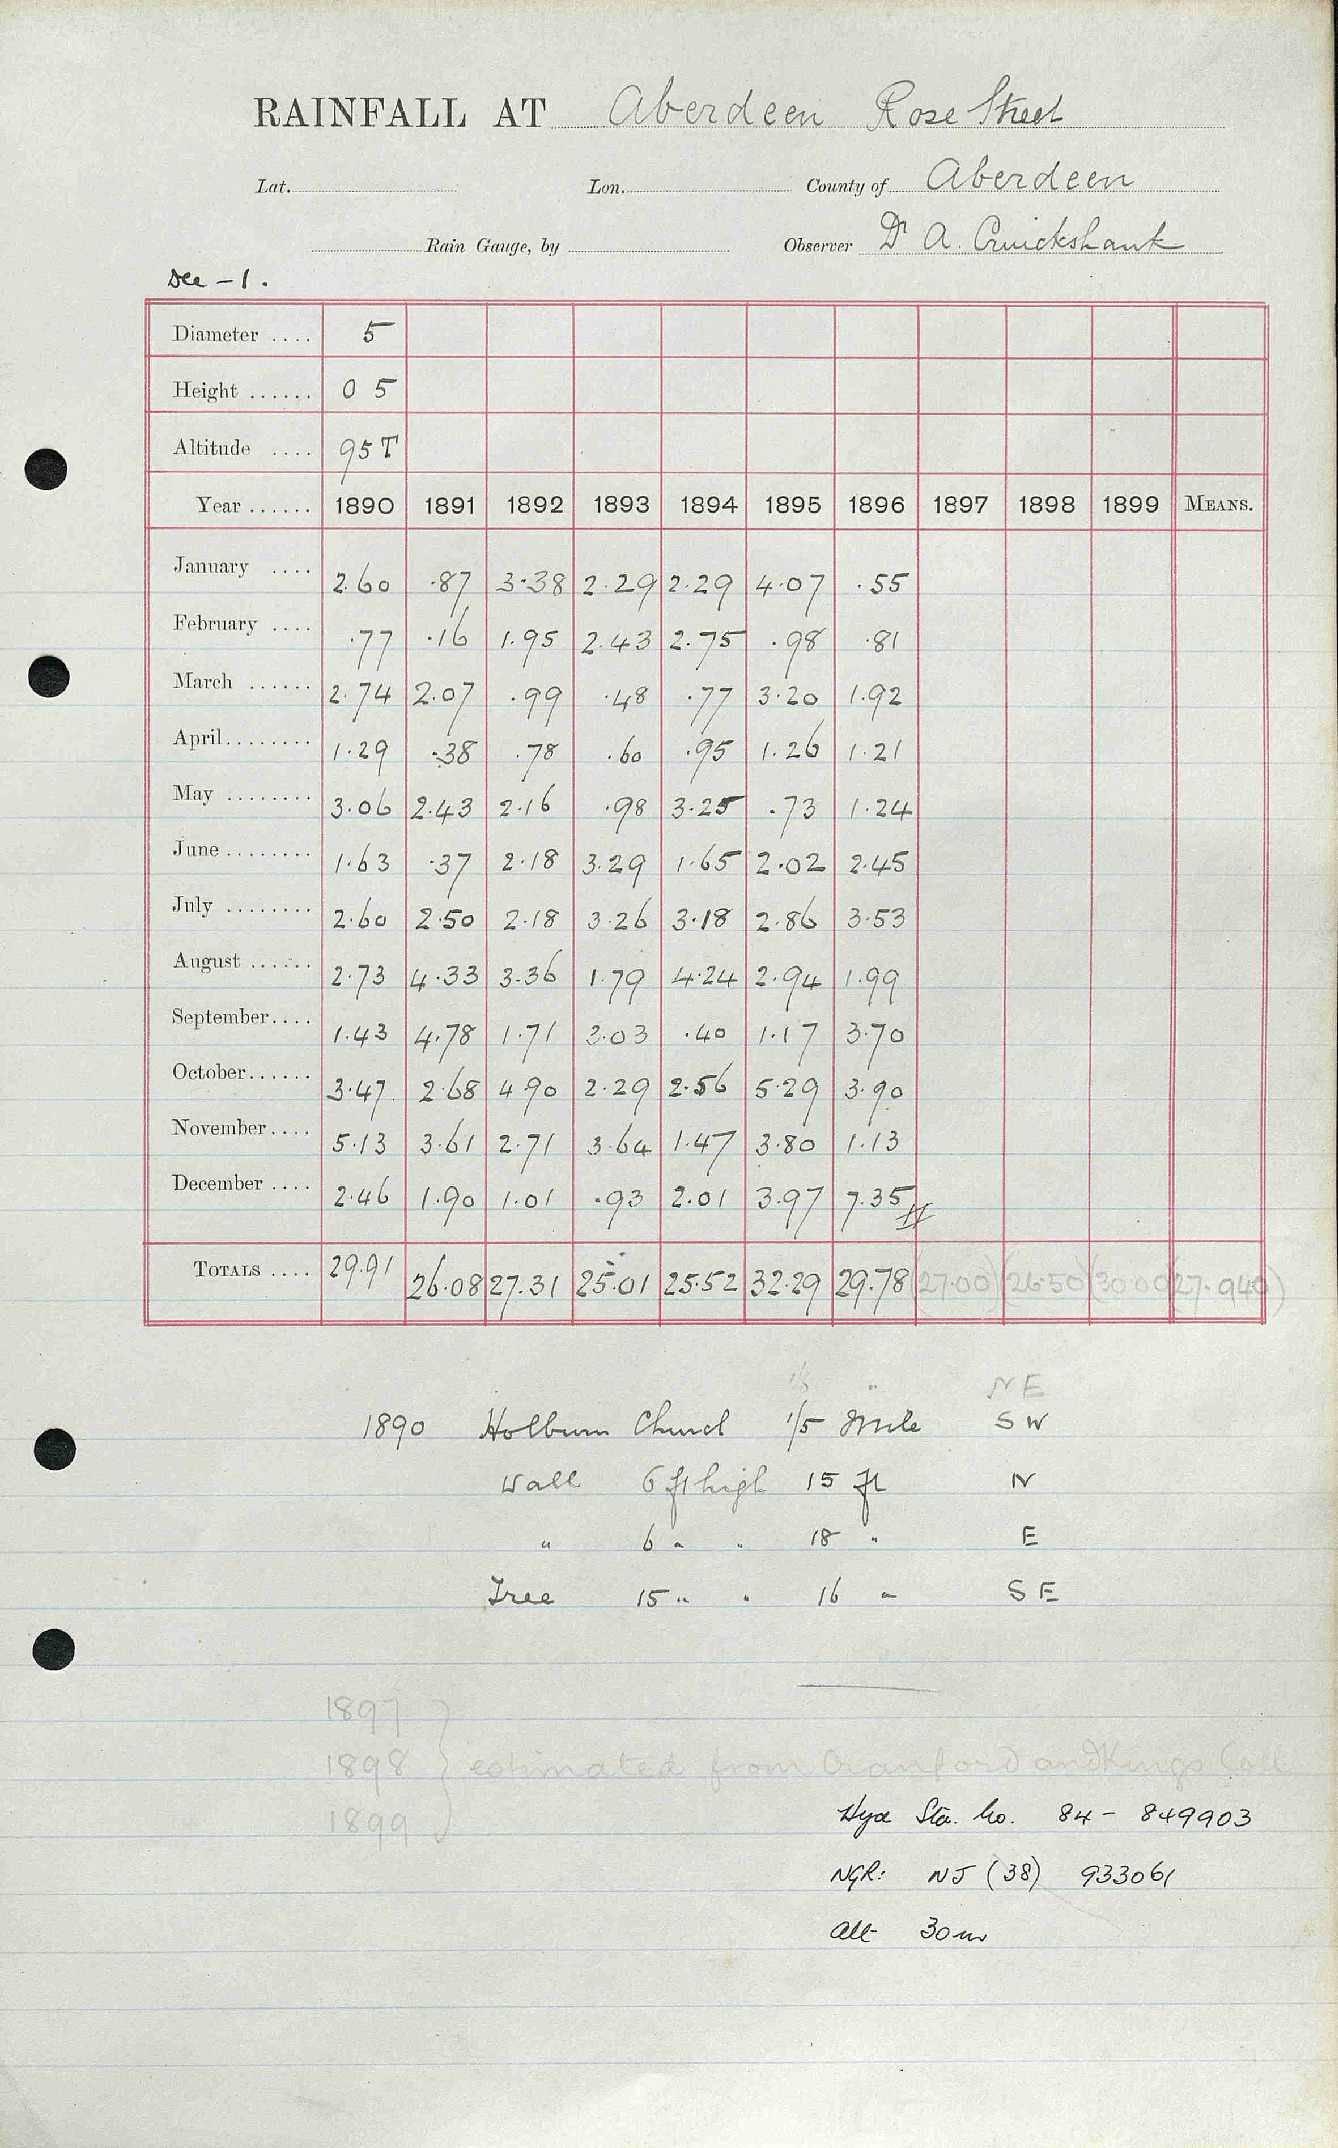 RAINFALL AT Aberdeen Rose Street
Lat. Lon. County of Aberdeen
Rain Gauge, by Observer Dr A. Cruickshank
Dec - 1.
Diameter .... 5
Height ...... 0 5
Altitude .... 95 T
Year ...... 1890 1891 1892 1893 1894 1895 1896 1897 1898 1899 MEANS.
January .... 2.60 .87 3.38 2.29 2.29 4.07 .55
February .... .77 .16 1.95 2.43 2.75 .98 .81
March ...... 2.74 2.07 .99 .48 .77 3.20 1.92
April........ 1.29 .38 .78 .60 .95 1.26 1.21
May ........ 3.06 2.43 2.16 .98 3.25 .73 1.24
June........ 1.63 .37 2.18 3.29 1.65 2.02 2.45
July ........ 2.60 2.50 2.18 3.26 3.18 2.86 3.53
August ...... 2.73 4.33 3.36 1.79 4.24 2.94 1.99
September.... 1.43 4.78 1.71 3.03 .40 1.17 3.70
October...... 3.47 2.68 4.90 2.29 2.56 5.29 3.90
November.... 5.13 3.61 2.71 3.64 1.47 3.80 1.13
December .... 2.46 1.90 1.01 .93 2.01 3.97 7.35
TOTALS .... 29.91 26.08 27.31 25.01 25.52 32.29 29.78 (27.00) (26.50) (30.00) (27.940)
" NE
1890 Holburn Church 1/5 Mile SW
Wall 6 ft high 15 ft N
" 6 " " 18 " E
Tree 15 " " 16 " SE
1897
1898 } estimated from Cranford and Kings Coll
1899
Hyd Sta. No. 84 - 849903
NGR: NJ (38) 933061
Alt 30m